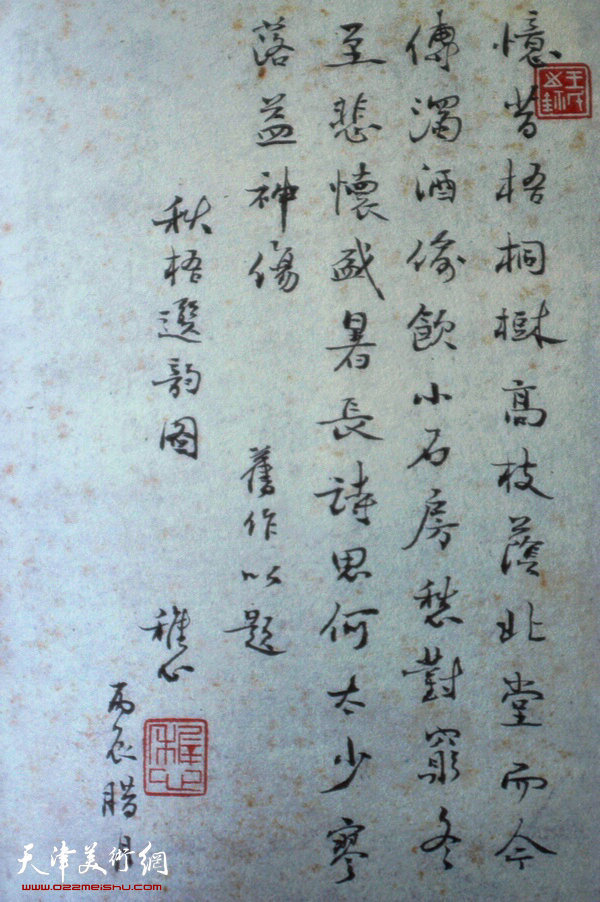 憶昔梧桐樹高枝蔭北堂而今
傳濁酒偷飲小石房愁對窮冬
至悲懷盛暑長詩思何太少寥
落益神傷
舊作以題
秋梧選韵图
稚心
丙辰腊月
稚心
天津美術網
www.022meishu.com